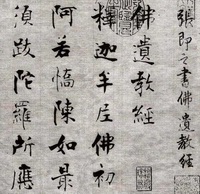 張即之書佛遺教經
佛遺教經
釋迦牟尼佛初
阿若憍陳如最
須跋陀羅所應